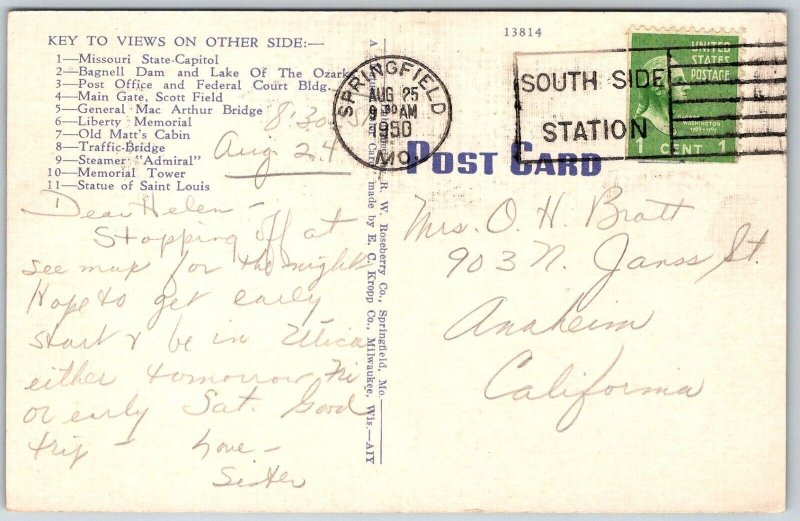 KEY TO VIEWS ON OTHER SIDE:—
1—Missouri State-Capitol
2—Bagnell Dam and Lake Of The Ozark
3—Post Office and Federal Court Bldg.
4—Main Gate, Scott Field
5—General Mac Arthur Bridge
6—Liberty Memorial
7—Old Matt's Cabin
8—Traffic-Bridge
9—Steamer "Admiral"
10—Memorial Tower
11—Statue of Saint Louis
8:30
Aug 24
Dear Helen—
Stopping off at
see map for the night
Hope to get early
start & be in Utica
either tomorrow, Fri
or early Sat. Good
trip — Love—
Sister
R. W. Roseberry Co., Springfield, Mo.
A Card made by E. C. Kropp Co., Milwaukee, Wis.—AIY
13814
POST CARD
SPRINGFIELD
AUG 25
9 30 AM
1950
MO.
SOUTH SIDE
STATION
UNITED
STATES
POSTAGE
WASHINGTON
1 CENT 1
Mrs. O. H. Bratt
903 N. Janss St.
Anaheim
California